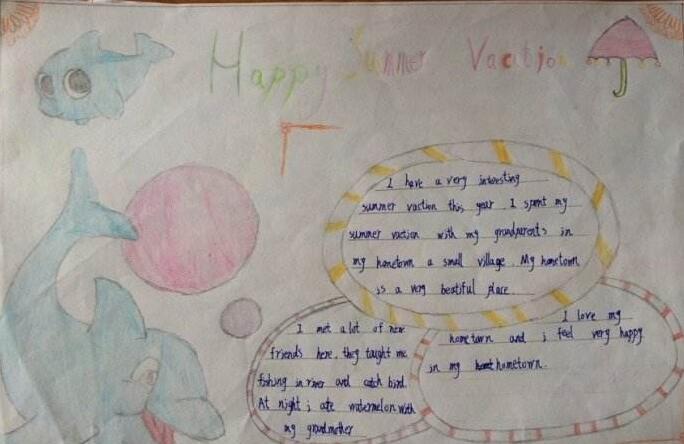 Happy Summer Vacation
I have a very interesting
summer vaction this year. I spent my
summer vaction with my grandparents in
my hometown a small village. My hometown
is a very beatiful place.
I met a lot of new
friends here. they taught me
fishing in river and catch bird.
At night i ate watermelon with
my grandmother
I love my
hometown and i feel very happy
in my hometown.